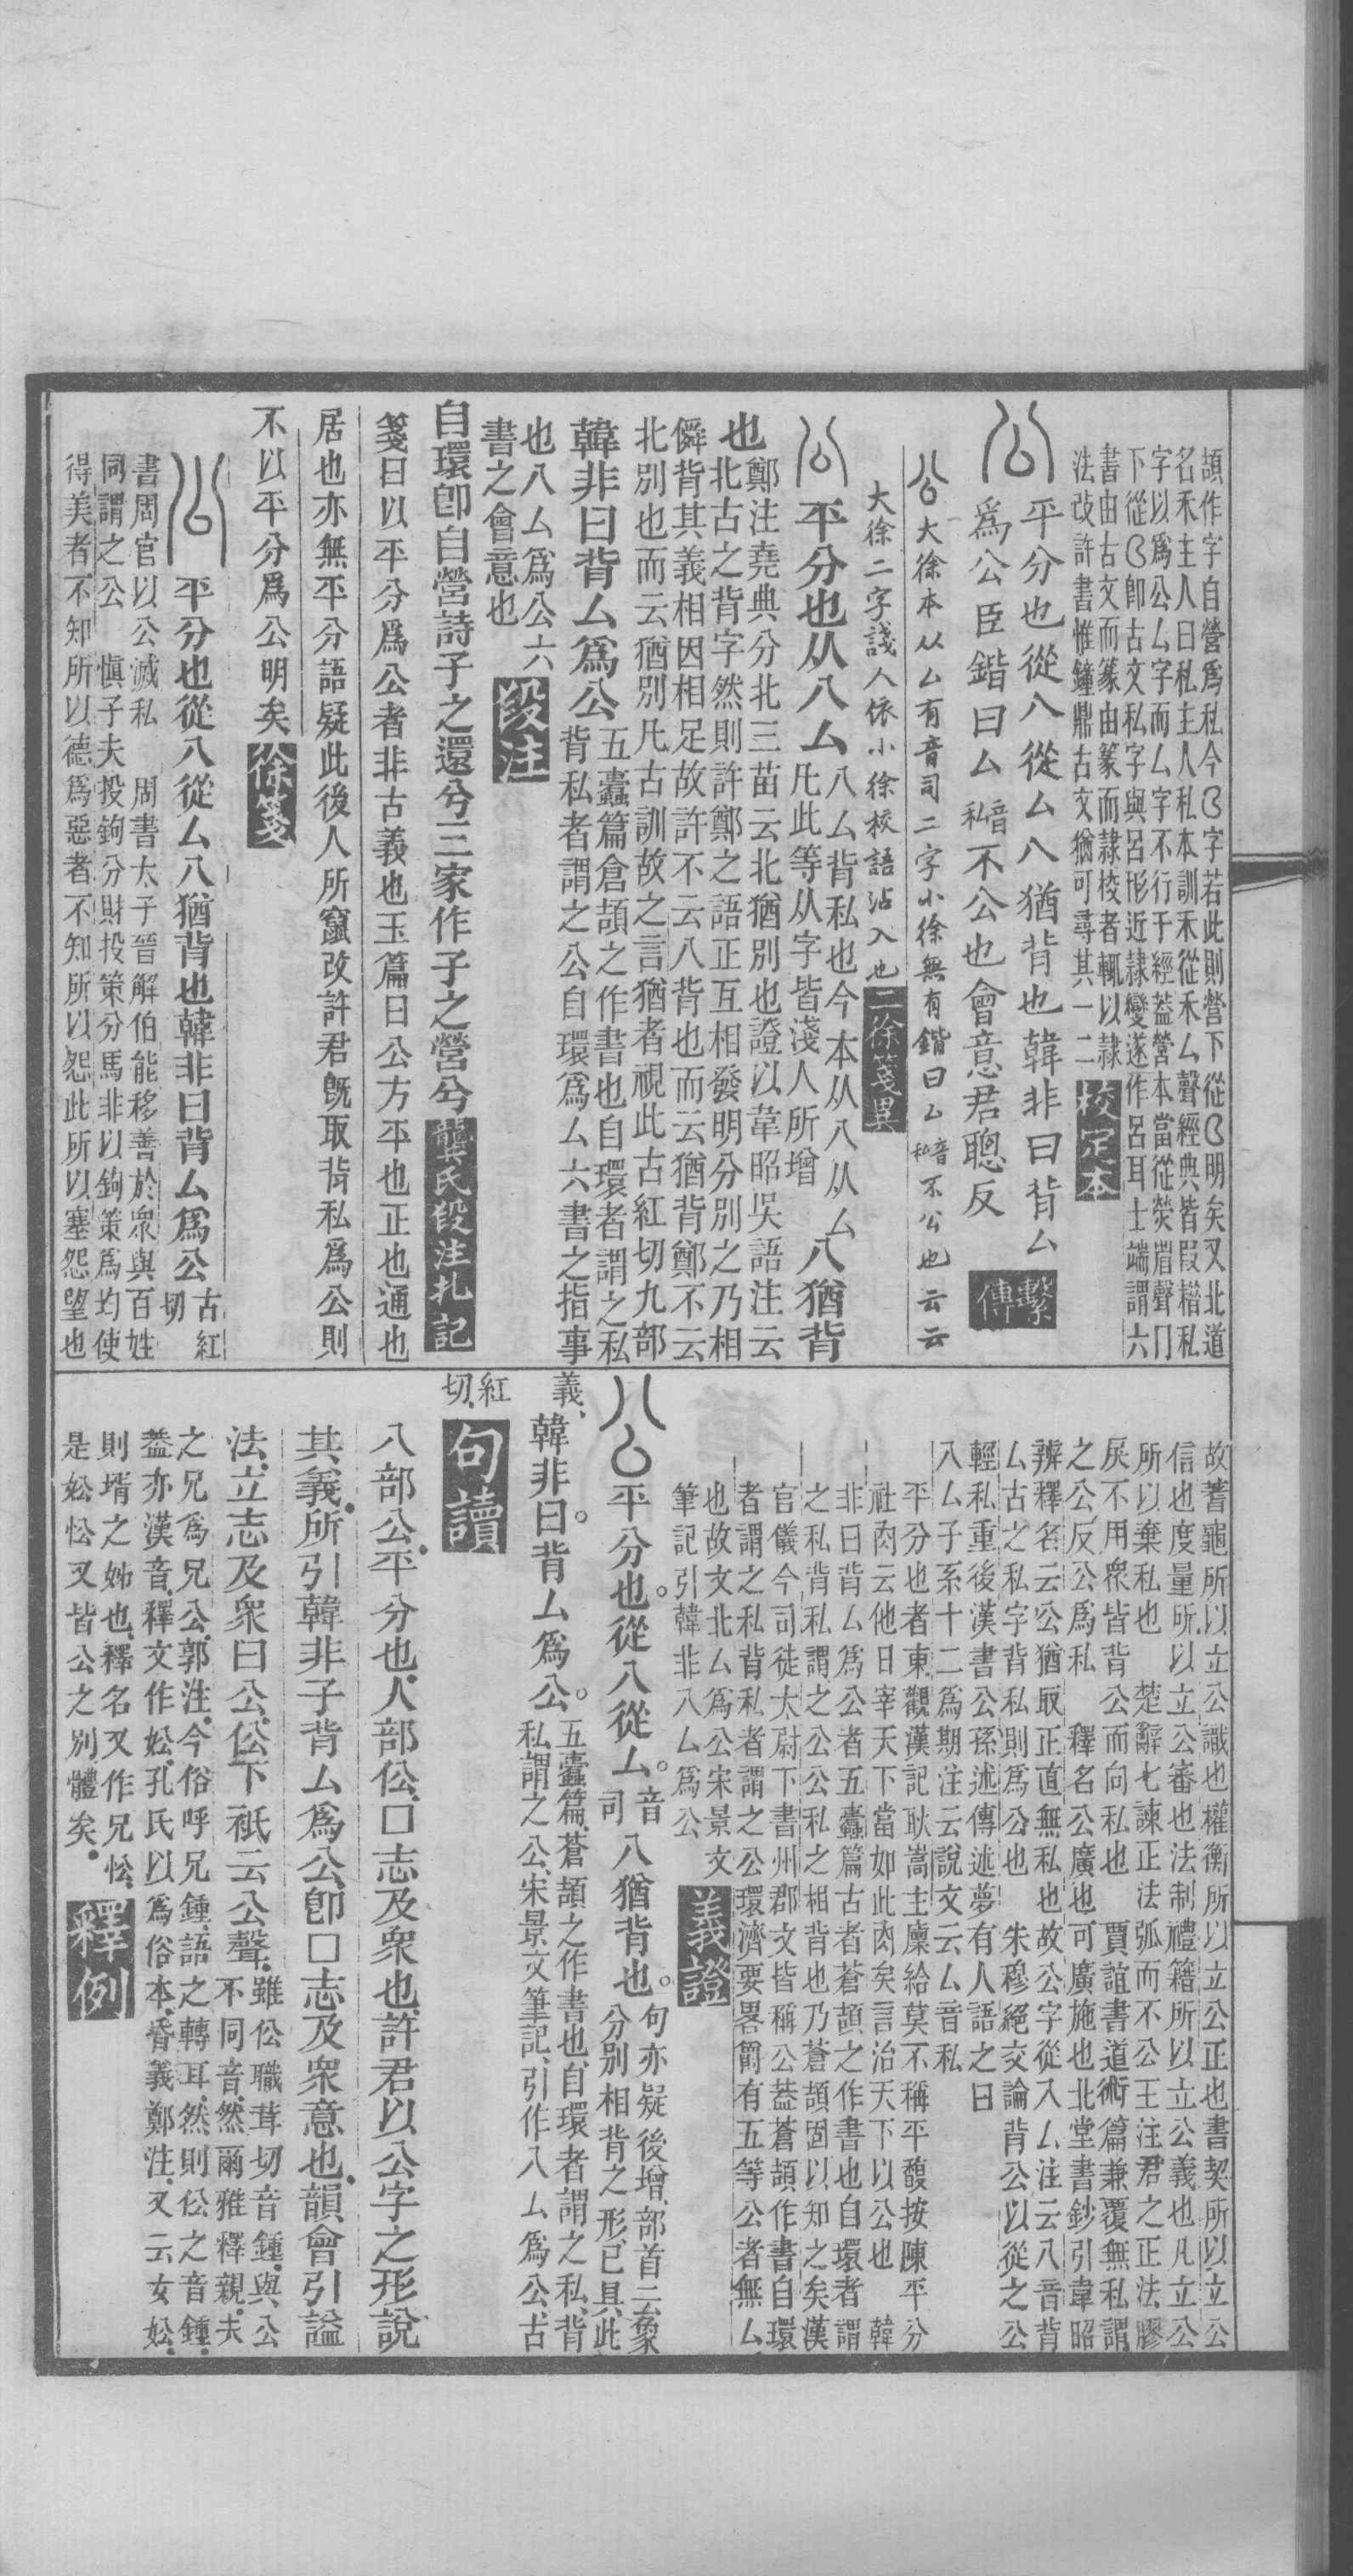 頡作字自營爲私今𠃌字若此則營下從𠃌明矣又北道
名禾主人曰私主人私本訓禾從禾厶聲經典皆叚榰私
字以爲公厶字而厶字不行于經蓋營本當從熒㡿聲冂
下從𠃌卽古文私字與呂形近隷變遂作呂耳士端謂六
書由古文而篆由篆而隷校者輒以隷
法攺許書惟鐘鼎古文猶可尋其一二 校定本
平分也從八從厶八猶背也韓非曰背厶
爲公臣鍇曰厶音私不公也會意君聰反 繫傳
公大徐本从厶有音司二字小徐無有鍇曰厶音私不公也云云
大徐二字諓人依小徐校語沾入也 二徐箋異
平分也从八厶八厶背私也今本从八从厶凡此等从字皆淺人所增八猶背
也鄭注堯典分北三苗云北猶別也證以韋昭吳語注云
北古之背字然則許鄭之語正互相發明分別之乃相
僢背其義相因相足故許不云八背也而云猶背鄭不云
北別也而云猶別凡古訓故之言猶者視此古紅切九部
韓非曰背厶爲公五蠹篇倉頡之作書也自環者謂之私
背私者謂之公自環爲厶六書之指事
也八厶爲公六
書之會意也 段注
自環卽自營詩子之還兮三家作子之營兮 龔氏段注札記
箋曰以平分爲公者非古義也玉篇曰公方平也正也通也
居也亦無平分語疑此後人所竄改許君旣取背私爲公則
不以平分爲公明矣 徐箋
平分也從八從厶八猶背也韓非曰背厶爲公古紅切
書周官以公滅私 周書太子晉解伯能移善於衆與百姓
同謂之公 愼子夫投鉤分財投策分馬非以鉤策爲均使
得美者不知所以德爲惡者不知所以怨此所以塞怨望也
故蓍龜所以立公識也權衡所以立公正也書契所以立公
信也度量所以立公審也法制禮籍所以立公義也凡立公
所以棄私也 楚辭七諫正法弧而不公王注君之正法膠
戾不用衆皆背公而向私也 賈誼書道術篇兼覆無私謂
之公反公爲私 釋名公廣也可廣施也北堂書鈔引韋昭
辨釋名云公猶取正直無私也故公字從八厶注云八音背
厶古之私字背私則爲公也 朱穆絕交論背公以從之公
輕私重後漢書公孫述傳述夢有人語之曰
八厶子系十二爲期注云說文云厶音私
平分也者東觀漢記耿嵩主廩給莫不稱平馥按陳平分
社肉云他日宰天下當如此肉矣言治天下以公也 韓
非曰背厶爲公者五蠹篇古者蒼頡之作書也自環者謂
之私背私謂之公公私之相背也乃蒼頡固以知之矣漢
官儀今司徒太尉下書州郡文皆稱公蓋蒼頡作書自環
者謂之私背私者謂之公環濟要畧爵有五等公者無厶
也故文北厶爲公宋景文
筆記引韓非八厶爲公 義證
平分也。從八從厶。音司八猶背也。句亦疑後增、部首云象
分別相背之形、已具此
義、韓非曰。背厶爲公。五蠹篇、蒼頡之作書也、自環者謂之私、背
私謂之公、宋景文筆記、引作八厶爲公、古
紅切、 句讀
八部公、平分也、人部伀、囗志及衆也、許君以公字之形說
其義、所引韓非子背厶爲公、卽囗志及衆意也、韻會引諡
法、立志及衆曰公、伀下衹云公聲、雖伀職茸切音鍾、與公
不同音、然爾雅釋親、夫
之兄爲兄公、郭注、今俗呼兄鍾、語之轉耳、然則伀之音鍾、
葢亦漢音、釋文作妐、孔氏以爲俗本、昏義鄭注、又云女妐、
則壻之姊也、釋名又作兄忪、
是妐忪又皆公之別體矣、 釋例